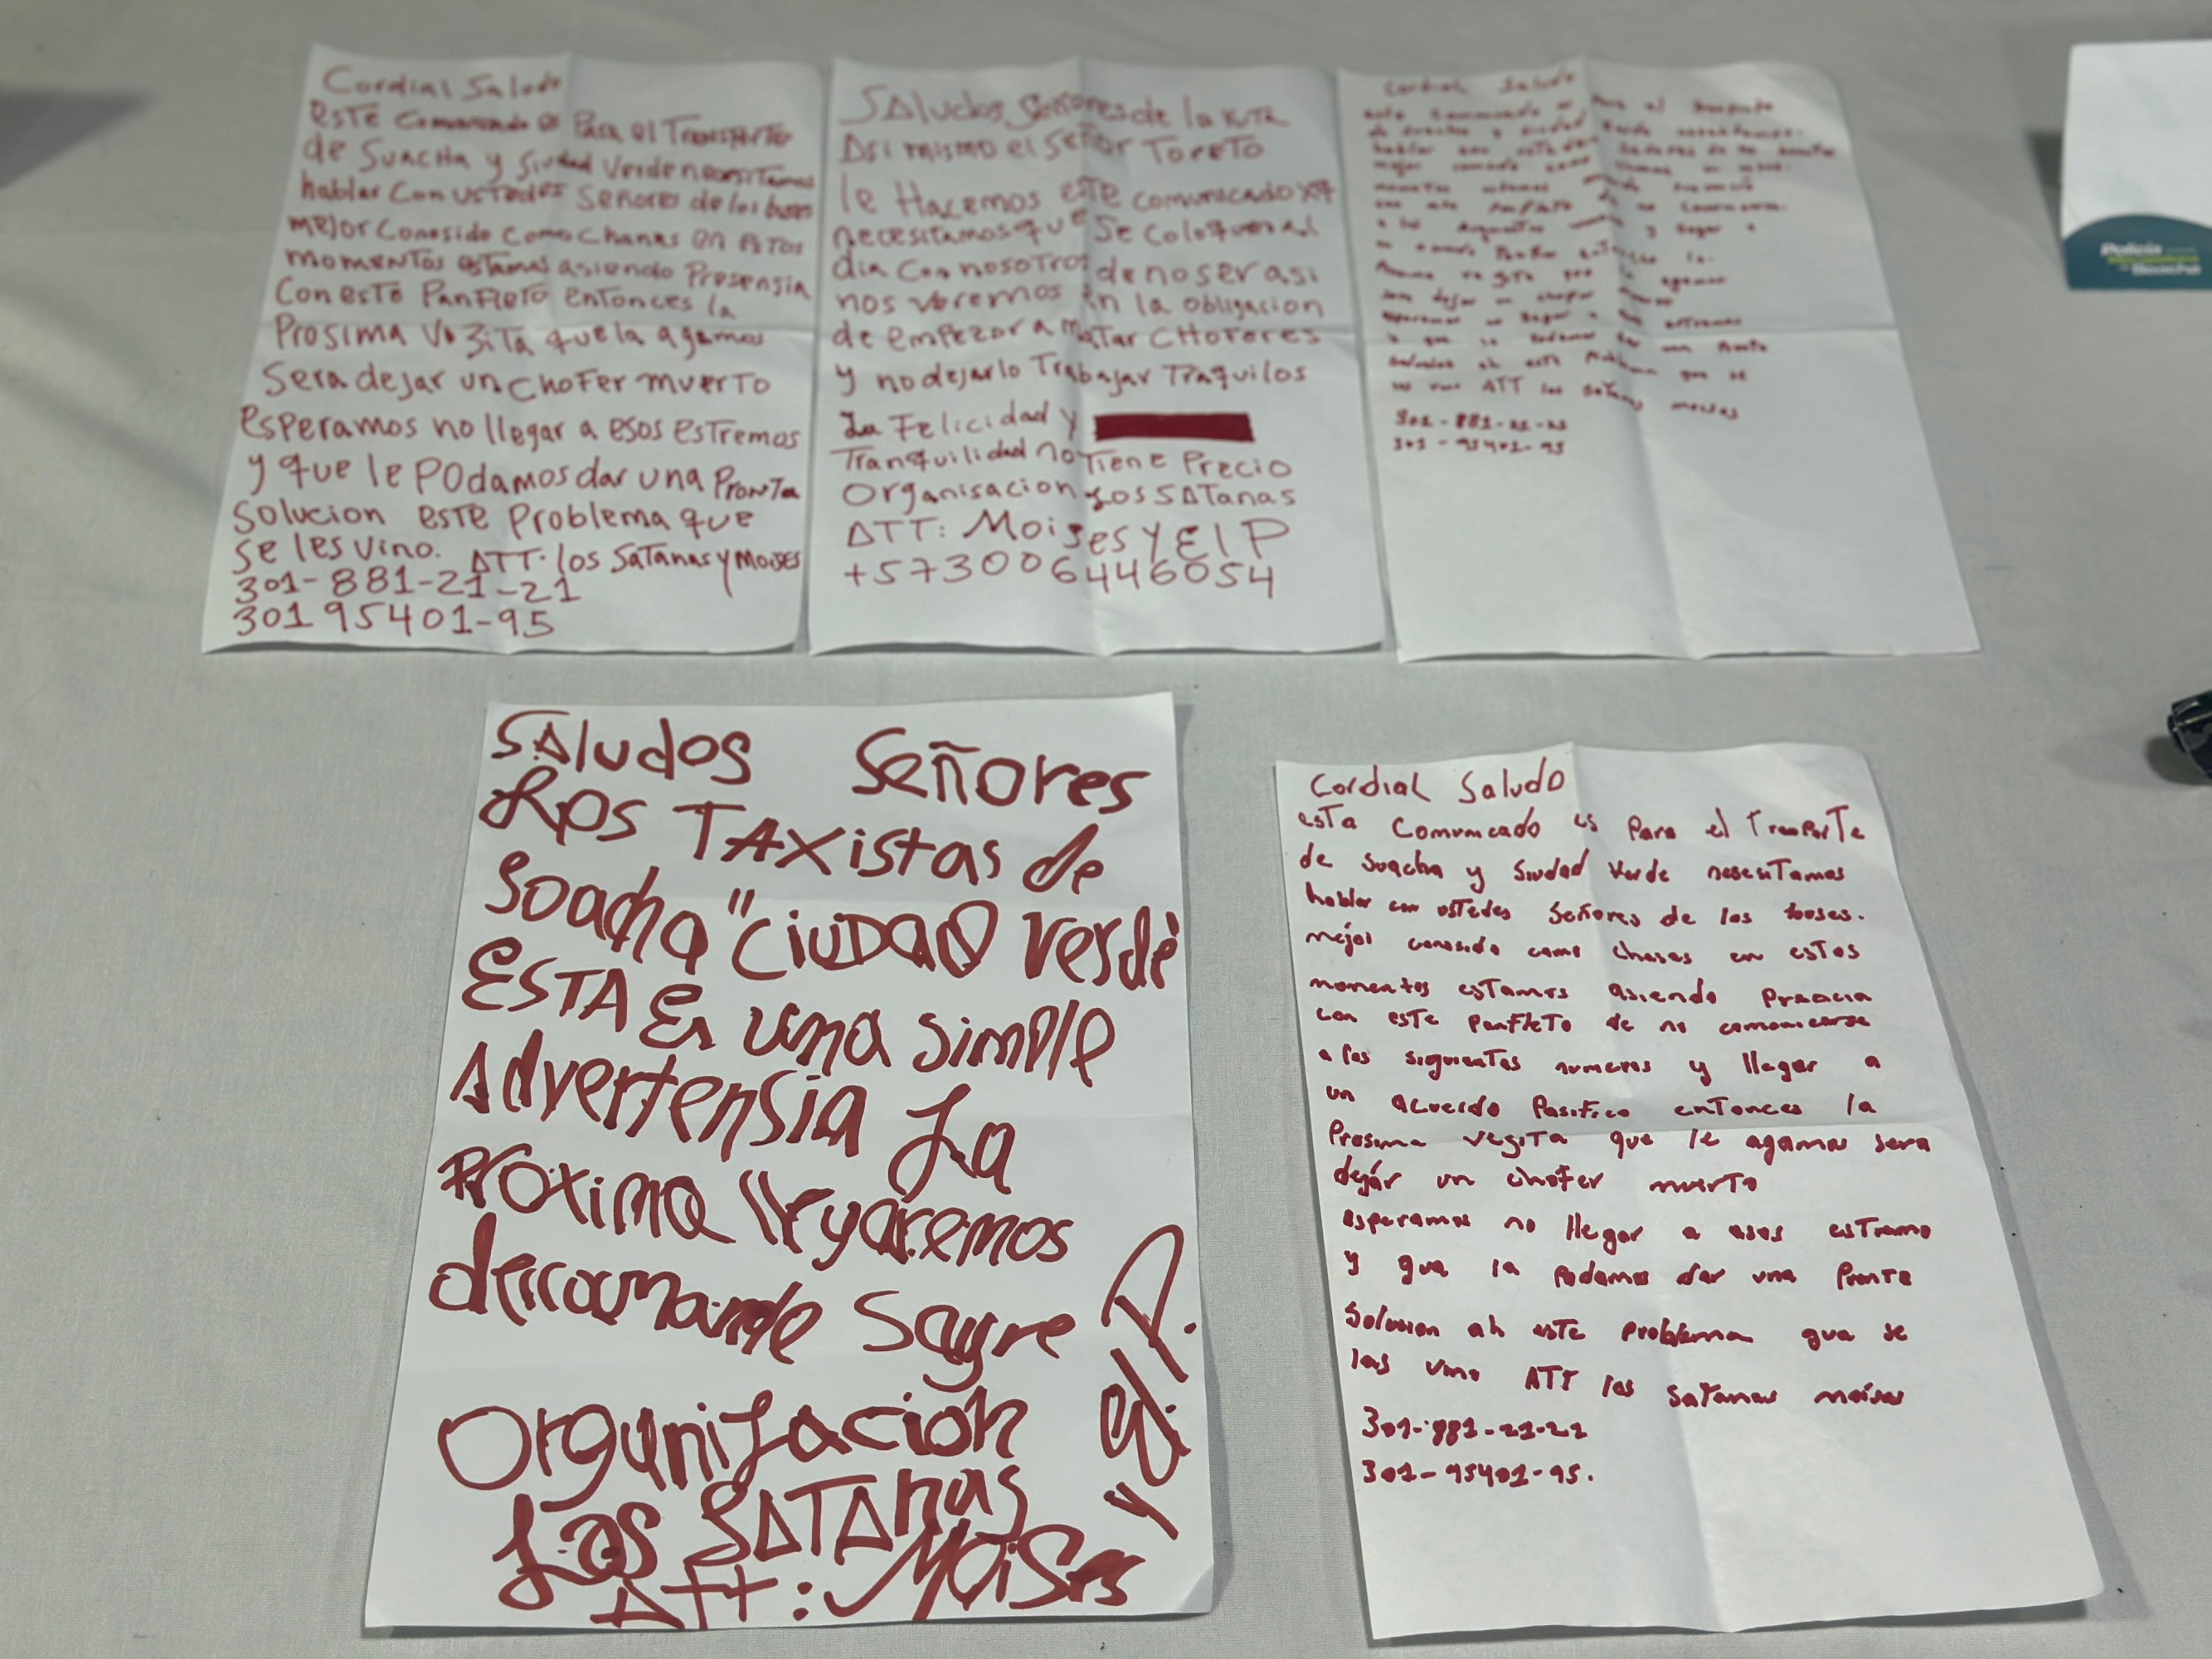 Cordial Saludo
este Comunicado es Para el Transporte
de Suacha y Siudad Verde nesesitamos
hablar Con ustedes Señores de los buses
mejor Conosido como chanas en estos
momentos estamos asiendo Presensia
Con este Panfleto entonces la
Prosima Vezita que la agamos
Sera dejar un chofer muerto
esperamos no llegar a esos estremos
y que le Podamos dar una Pronta
Solucion este Problema que
se les vino. ATT. los Satanas y Moises
301-881-21-21
301 95401-95
SAludos Señores de la RUTA
Asi mismo el Señor Toreto
le Hacemos este comunicado xq
necesitamos que Se coloquen al
dia Con nosotros de no ser asi
nos veremos en la obligacion
de empezar a matar CHoferes
y no dejarlo Trabajar Traquilos
La Felicidad y
Tranquilidad no Tiene Precio
Organisacion Los SATanas
ATT: Moises Y El P
+573006446054
Cordial Saludo
301-881-21-21
301-95401-95
SAludos Señores
Los TAXistas de
Soacha "CiUDAD Verde"
ESTA Es una simple
Advertensia La
Proxima llegaremos
derramando Sagre
Organizacion
Los SATAnas
Att: Moises
y el P.
Cordial Saludo
esta Comunicado es Para el TrasPorTe
de Suacha y Siudad Verde nesesiTamos
hablar con ustedes Señores de los buses.
mejor conosido como chanas en estos
momentos esTamos asiendo
con este PanfleTo de no comonicarse
a los siguientes numeros y llegar a
un acuerdo Pasifico enTonces la
Prosima vesiTa que le agamos sera
dejar un chofer muerto
esperamos no llegar a esos esTremo
y que la Podamos dar una Pronta
Solucion ah este Problema que se
les vino ATT los SaTanas moises
301-881-21-21
301-95401-95.
Policía
Soacha